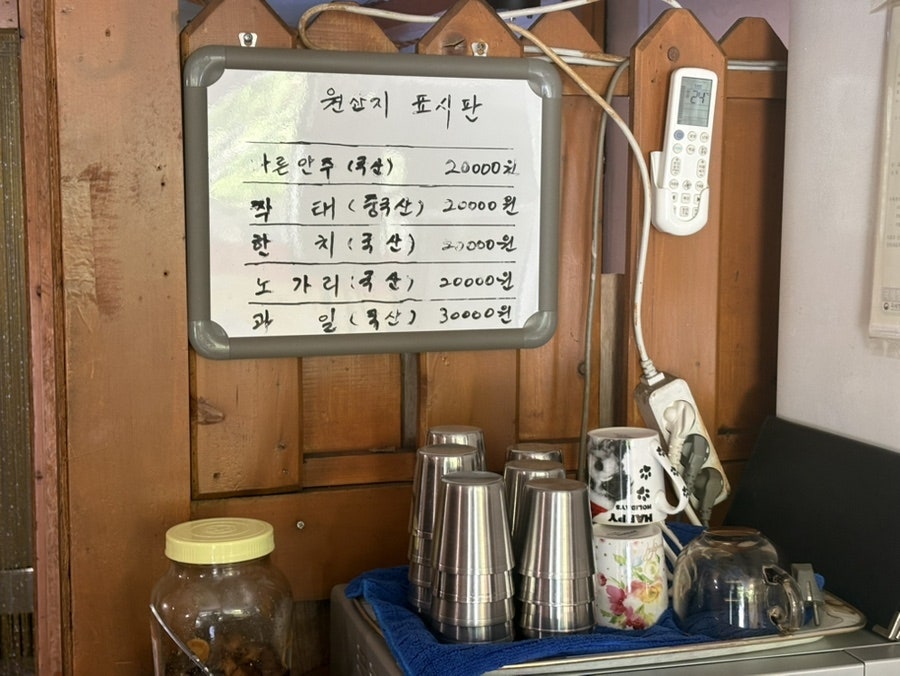 원산지 표시판
른안주 (국산) 20000원
짝태 (중국산) 20000원
한치 (국산) 20000원
노가리 (국산) 20000원
과일 (국산) 30000원
24
HAPPY
HOLIDAYS